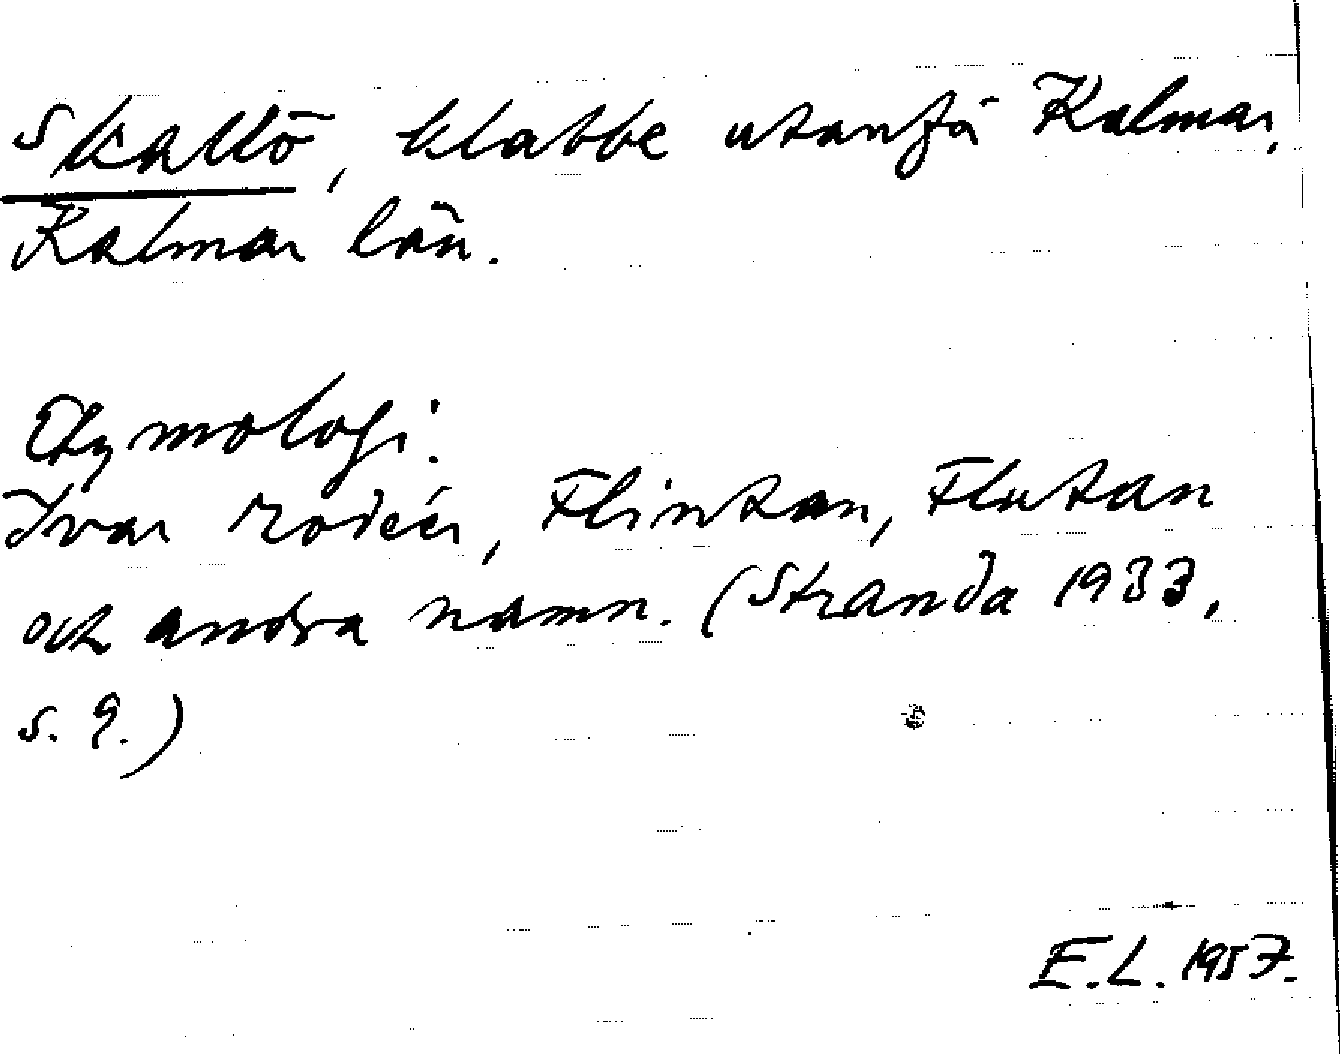 Skallö, klabbe utanfö Kalmar,
Kalmar län.
Etymologi:
Ivar Modéer, Flintan, Flutan
och andra namn. (Stranda 1933,
s. 9.)
E.L. 1957.